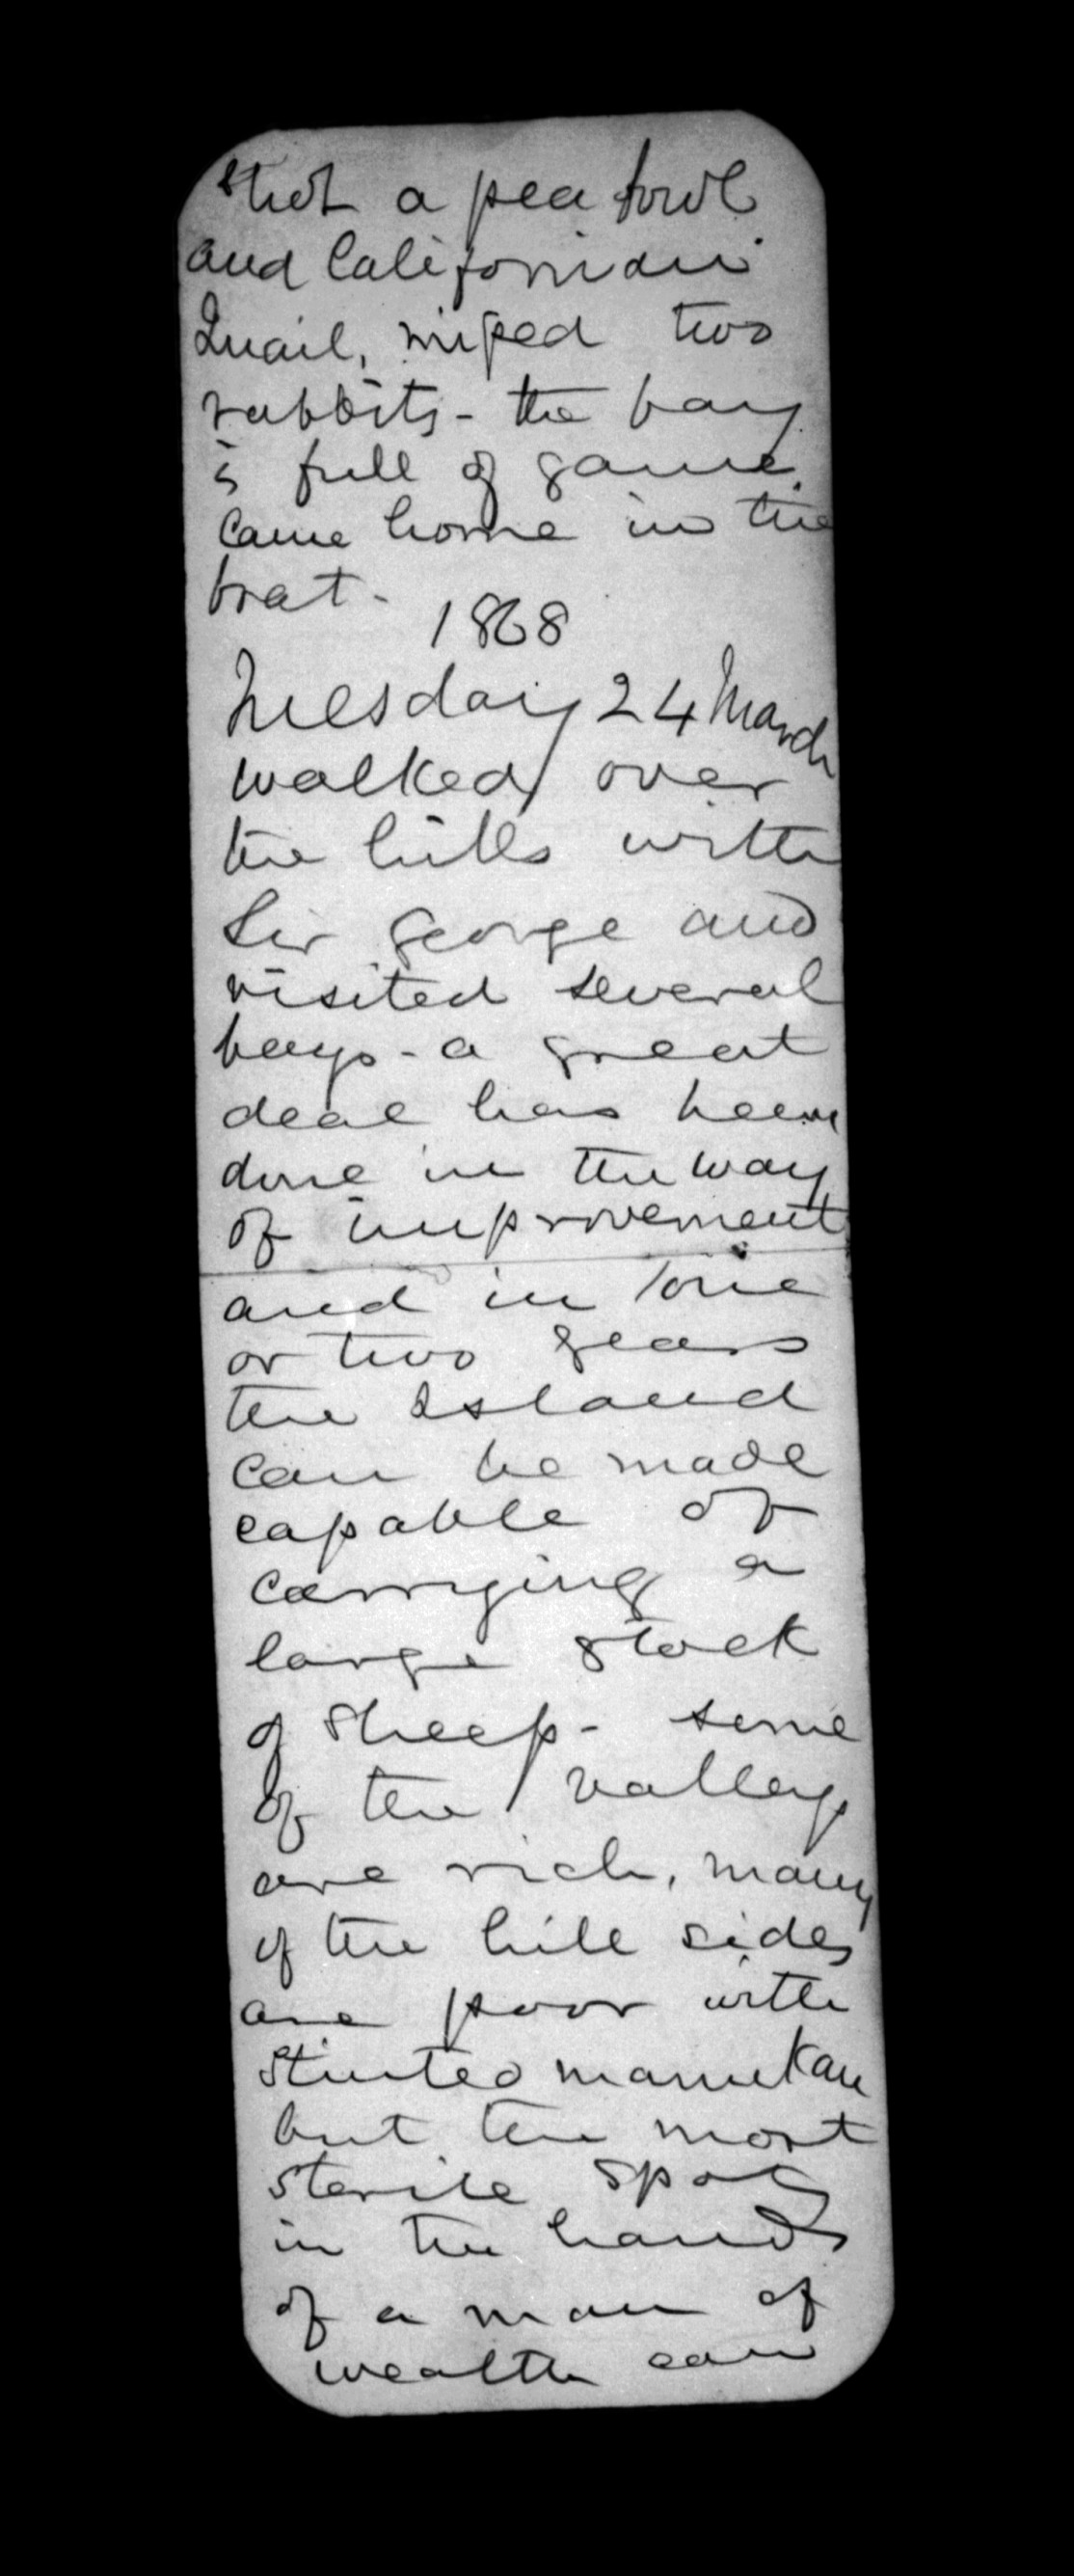 Shot a pea fowl
and Califonian
Quail, missed two
rabbits - the bay
is full of game.
Came home in the
boat -
1868
Tuesday 24 March
walked over
the hills with
Sir George and
visited several
bays - a great
deal has been
done in the way
of improvement
and in one
or two years
the Island
can be made
capable of
carrying a
large stock
of sheep - some
of the valleys
are rich, many
of the hill sides
are poor with
stunted manukau
but the most
sterile spots
in the hands
of a man of
wealth can